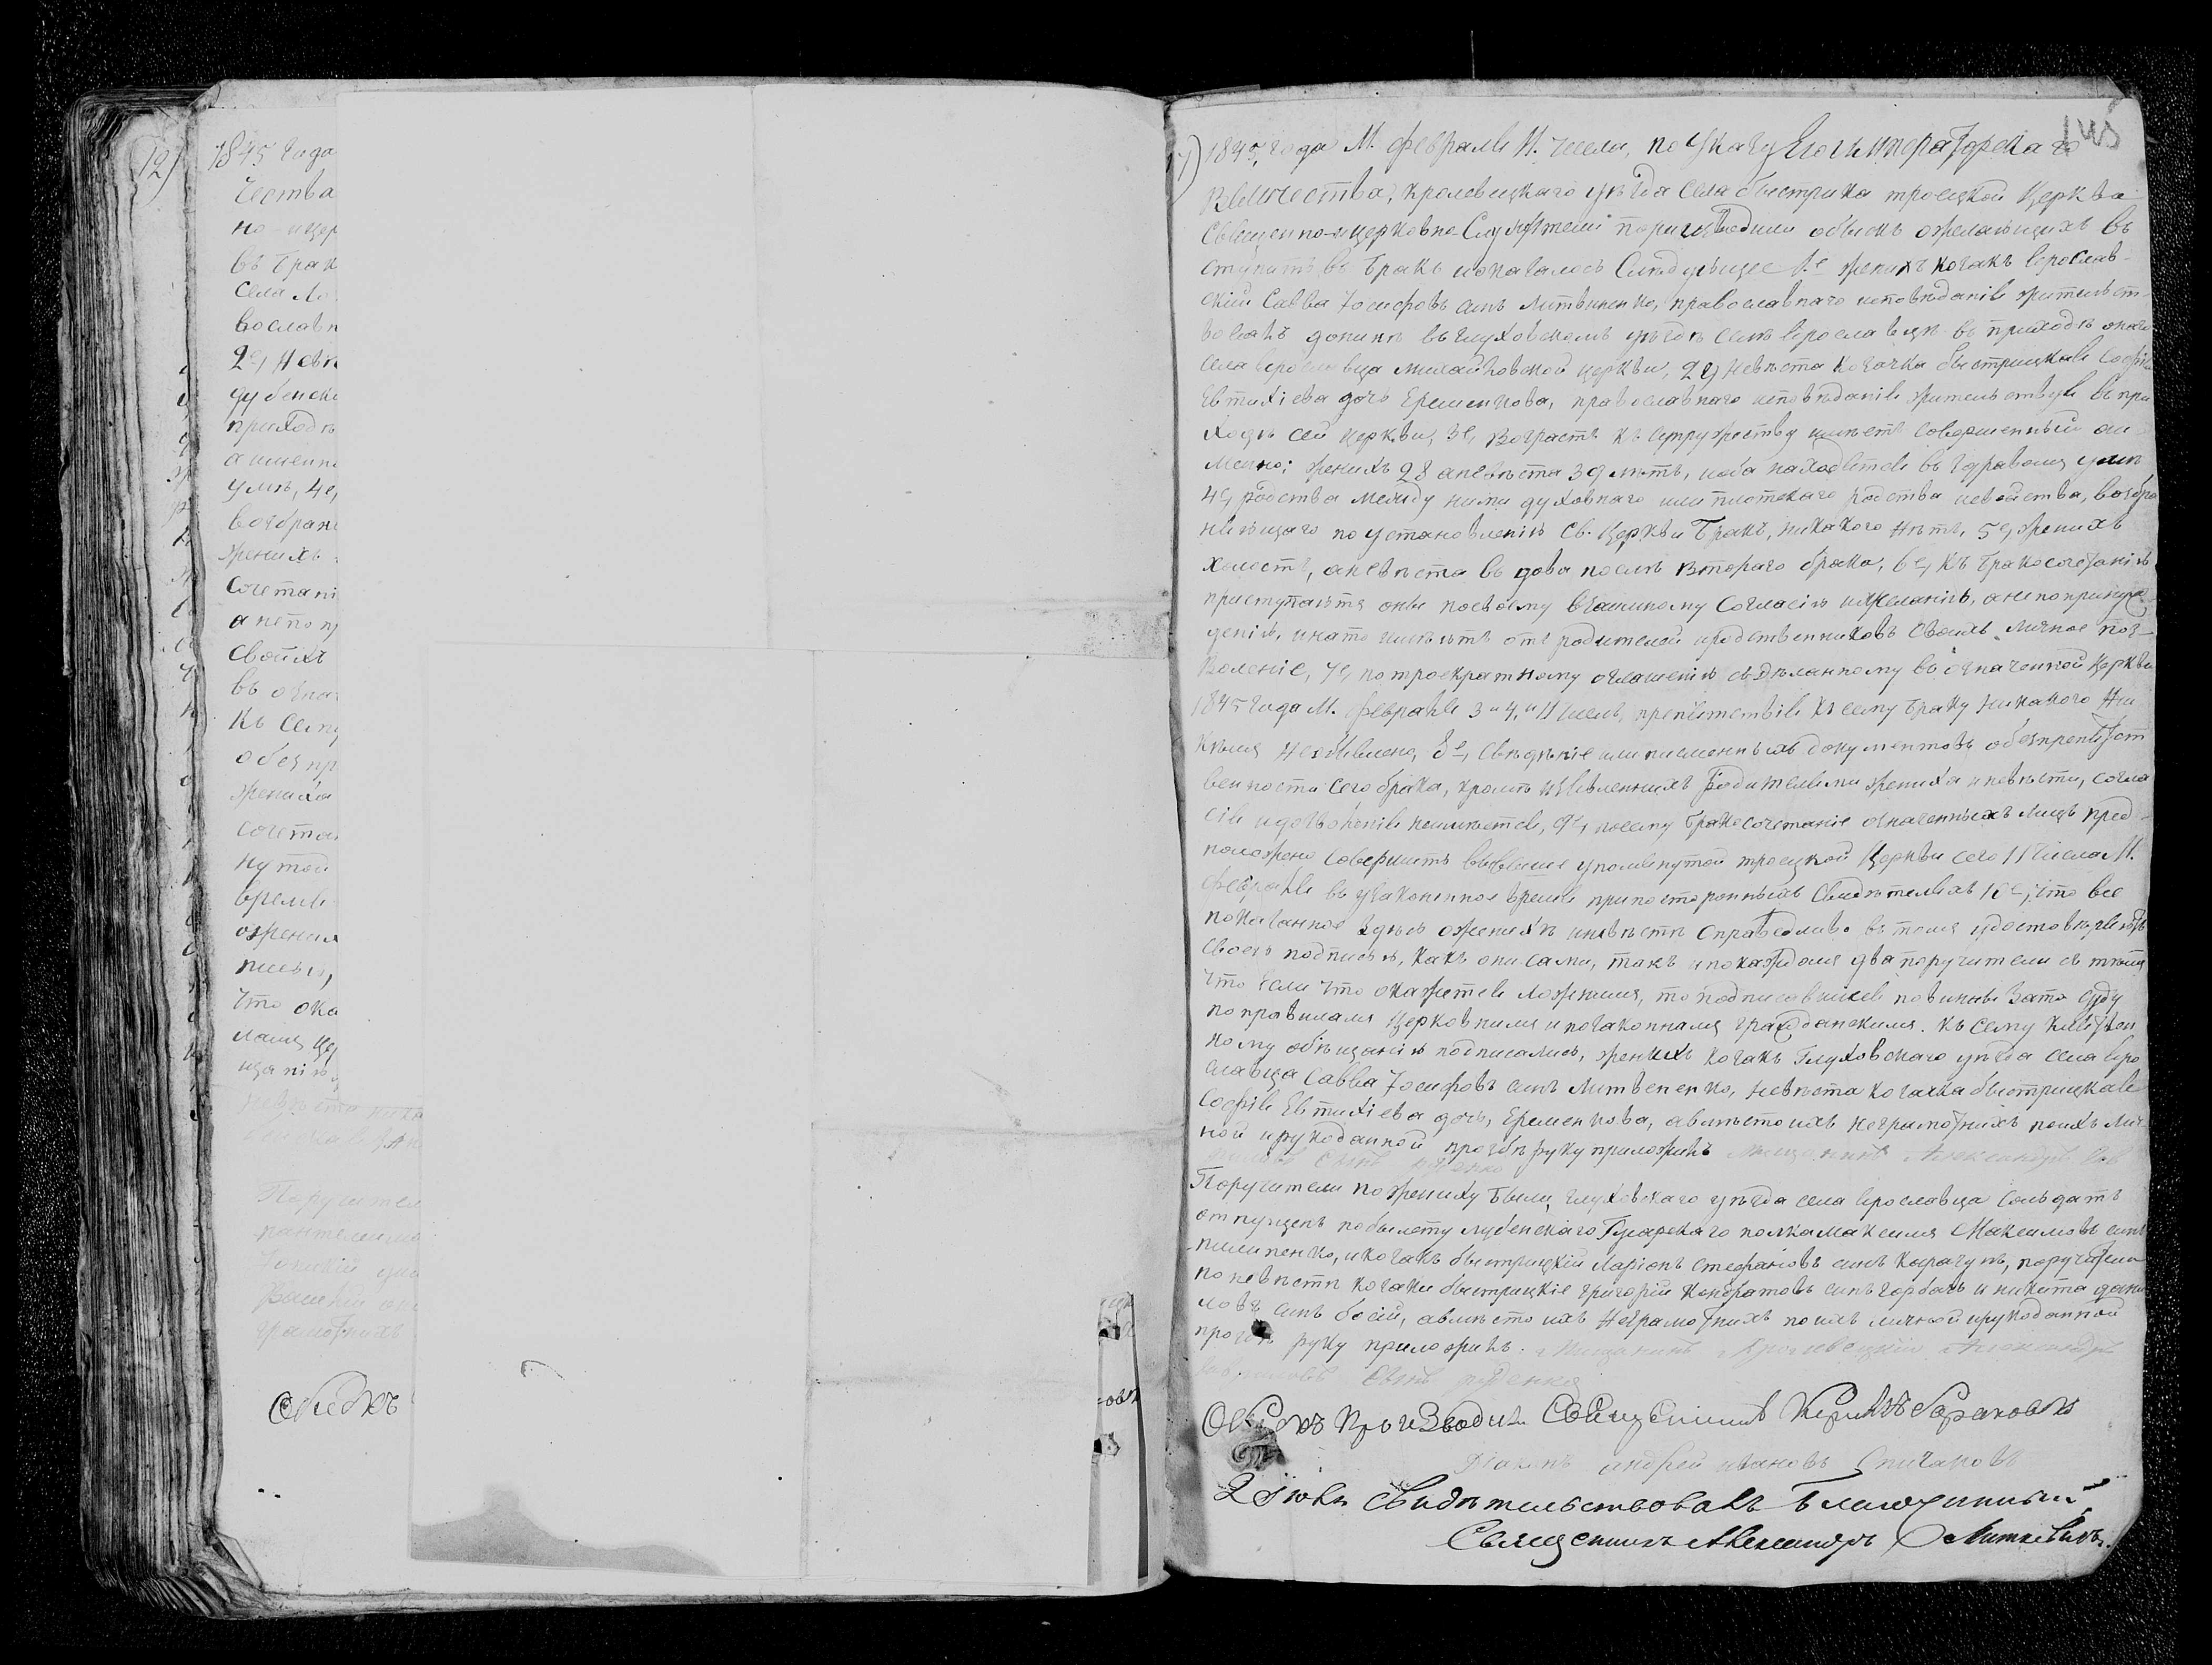 12)
1845 года
чества
но-цер
въ брак
села
вославн
2е, Невѣ
дубенск
приходѣ
а именн
умѣ, 4е,
возбран
женихъ
сочетані
а непо пр
своихъ
въ означ
къ сему
обезпр
жениха
сочетан
нутой
время
ожених
писью,
что ока
щанію
Поручител
грамотнихъ
Обыскъ
145
1845 года М. февраля 11. числа, по Указу Его Императорскаго
Величества, кролевецкаго уѣзда села быстрика троецкой Церкви
Священно-и церковно-Служители производили обыскъ ожелающихъ в
ступить въ бракъ и оказалось Слѣдующее 1.е женихъ козакъ ярослав-
скій Савва Іосифовъ синъ Литвиненко, православнаго исповѣданія жительст-
вовалъ донинѣ въ глуховскомъ уѣздѣ селѣ ярославцѣ въ приходѣ онаго
села ярославца михайловской церкви, 2е, невѣста козачка быстрицкая Софія
Евтихіева дочь Еременкова, православнаго исповѣданія жительствуя въ при
ходѣ сей церкви, 3е, возрастъ къ супружеству имѣетъ совершенный аи-
менно; женихъ 28 а невѣста 39 лѣтъ, и оба находятся въ здравомъ умѣ
4е, родства между ними духовнаго или плотскаго родства и свойства, возбра
няющаго по установленію Св. Церкви бракъ, никакого нѣтъ, 5е, женихъ
холостъ, а невѣста вдова послѣ втораго брака, 6е, къ бракосочетанію
приступаютъ они посвоему взаимному согласію ижеланію, а не по принуж
денію, инато имѣютъ отъ родителей иродственниковъ своихъ личное поз-
воленіе, 7е, по троекратному оглашенію сдѣланному въ означенной церкви
1845 года М. февраля 3 и 4, и 11 числъ, препятствія къ сему браку никакого ни
кѣмъ не объявлено, 8е, свѣдѣніе или писменныхъ документовъ обезпрепятст
венности сего брака, кромѣ изъявленныхъ родителями жениха и невѣсти, согла
сія и дозволенія неимѣется, 9е, посему бракосочетаніе означенныхъ лицъ пред-
положено совершить въ више упомянутой троецкой Церкви сего 11 числа М.
февраля въ узаконенное время при постороннихъ Свидѣтеляхъ 10е, что все
показанное здѣсь оженихѣ иневѣстѣ справедливо въ томъ удостовѣряютъ
своею подписью, какъ они сами, такъ и по каждомъ два поручители съ тѣмъ
что если что окажется ложнимъ, то подписавшіеся повинни зато суду
по правиламъ церковнимъ и по законнамъ гражданскимъ. къ сему
ному обѣщанію подписались, женихъ козакъ Глуховскаго уѣзда села яро
славца Савва Іосифовъ синъ Литвененко, невѣста козачка быстрицкая
Софія Евтихіева дочь, Еременкова, авмѣсто ихъ неграмотнихъ по ихъ лич-
ной ирукоданной прозбѣ руку приложилъ Мещанинъ Александръ
Поручители по жениху были, глуховскаго уѣзда села ярославца солдатъ
отпущенъ по билету лубенскаго Гусарскаго полка максимъ Максимовъ синъ
пилипенко, и козакъ быстрицкій Ларіонъ стефановъ синъ Карагунъ, поручители
по невѣсти козаки быстрицкіе григорій Кондратовъ синъ горбань и никита дани
ловъ синъ босій, авмѣсто ихъ Неграмотнихъ по ихъ личной ирукоданной
прозбѣ руку приложилъ. Мещанинъ Кролевецкій Александръ
синъ
Обыскъ Производилъ Священникъ
Діаконъ андрей ивановъ
2 Іюня Свидѣтельствовалъ благочинный
Священникъ Александръ